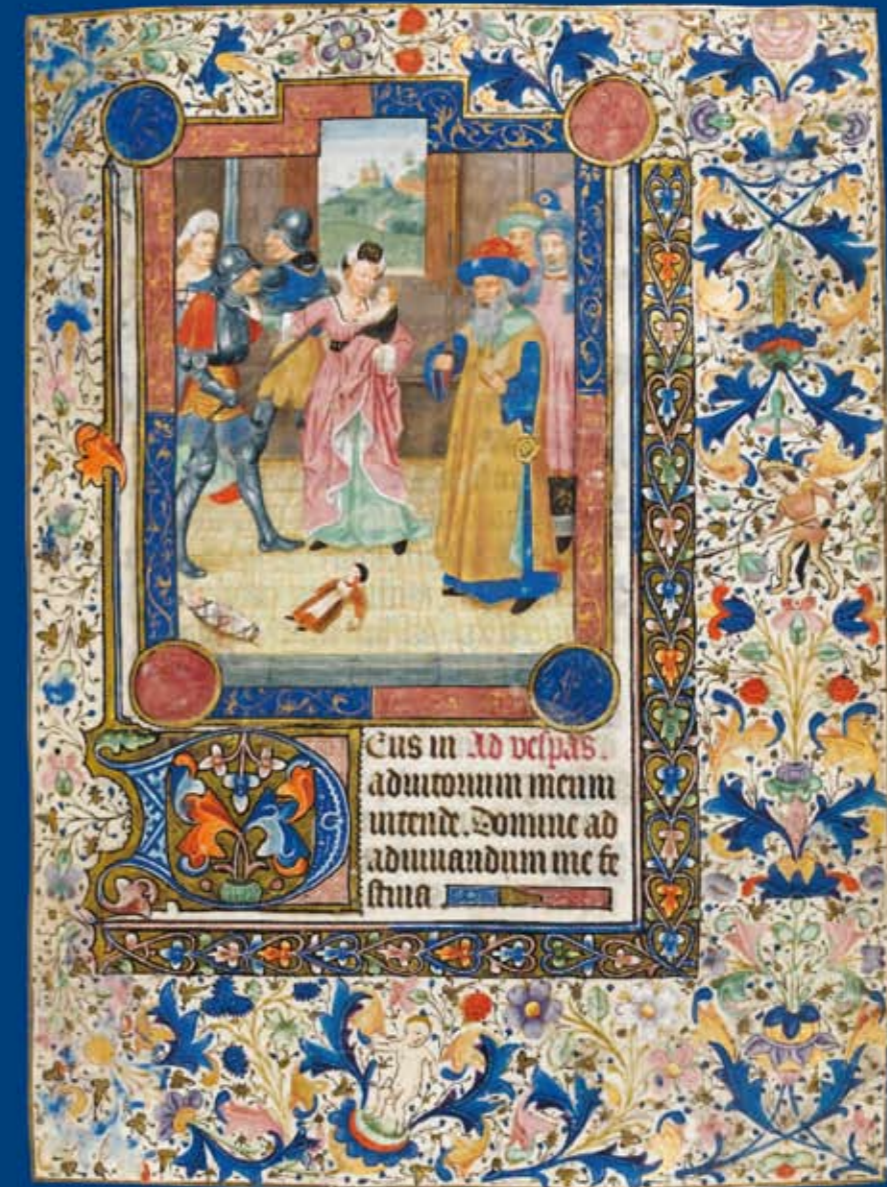 Deus in Ad vespas.
adiutorium meum
intende. Domine ad
adiuuandum me fe
stina